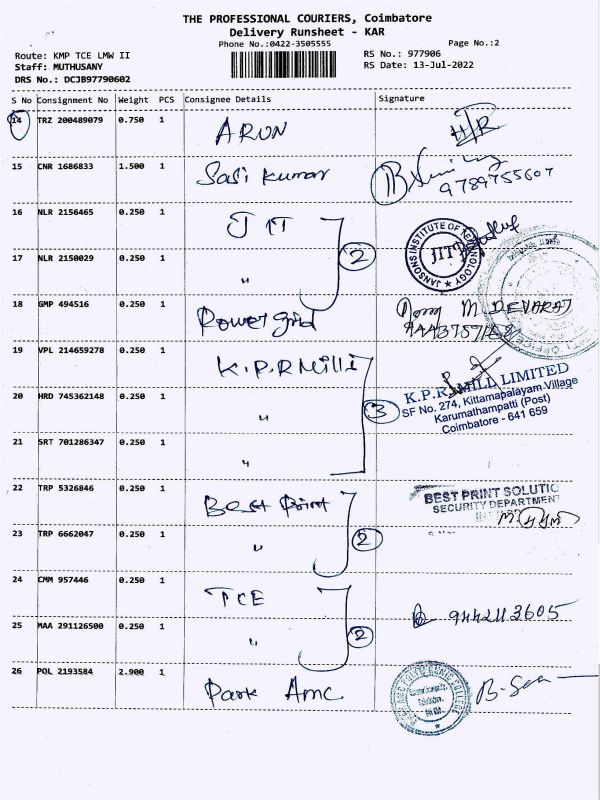 THE PROFESSIONAL COURIERS, Coimbatore
Delivery Runsheet - KAR
Phone No.:0422-3505555
Page No.:2
Route: KMP TCE LMW II
RS No.: 977906
Staff: MUTHUSANY
RS Date: 13-Jul-2022
DRS No.: DCJB97790602
S No Consignment No Weight PCS Consignee Details Signature
14 TRZ 200489079 0.750 1 ARUN
15 CNR 1686833 1.500 1 Sasi Kumar 9789755607
16 NLR 2156465 0.250 1 JIT
JANSONS INSTITUTE OF TECHNOLOGY JIT
17 NLR 2150029 0.250 1 " 2
18 GMP 494516 0.250 1 Power grid M. DEVARAJ
19 VPL 214659278 0.250 1 K.P.R Mill
20 HRD 745362148 0.250 1 " 3
K.P.R. MILL LIMITED
SF No. 274, Kittamapalayam Village
Karumathampatti (Post)
Coimbatore - 641 659
21 SRT 701286347 0.250 1 "
22 TRP 5326846 0.250 1 Best Print
BEST PRINT SOLUTIO
SECURITY DEPARTMENT
23 TRP 6662047 0.250 1 " 2
24 CMM 957446 0.250 1 TCE 9442113605
25 MAA 291126500 0.250 1 " 2
26 POL 2193584 2.900 1 Park Amc